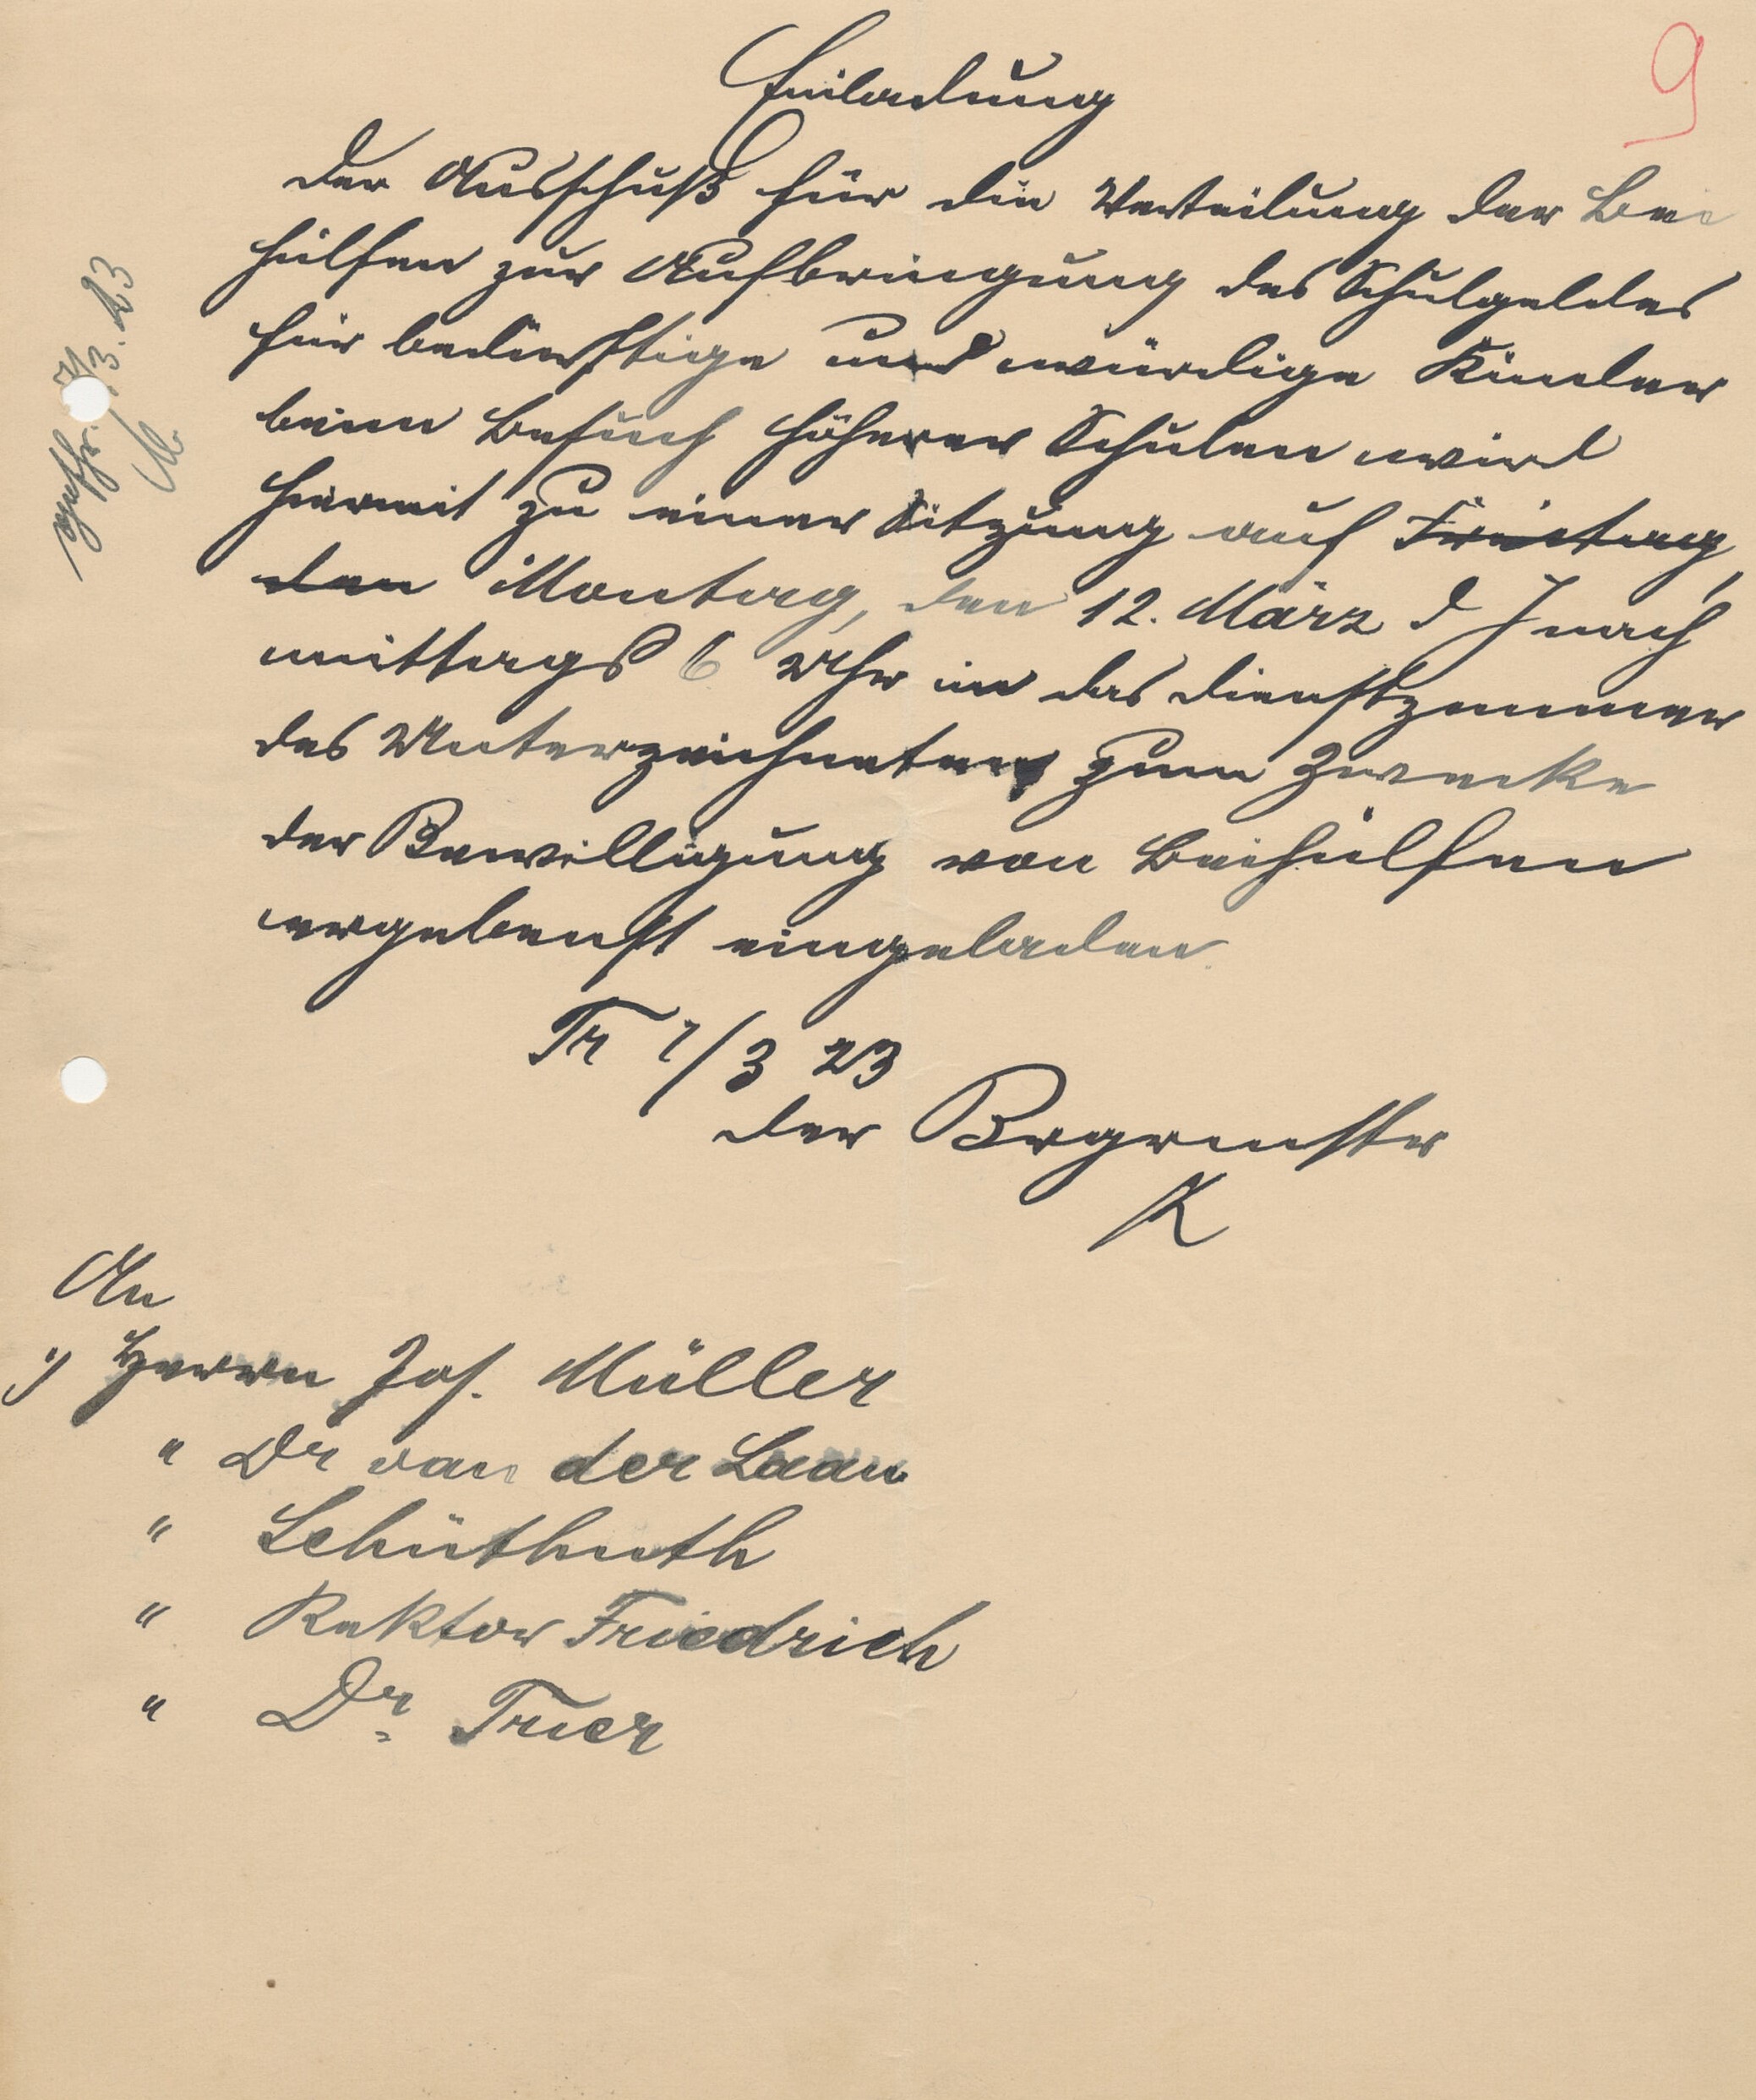 9
Einladung
Der Ausschuß für die Verteilung der Bei
hülfen zur Aufbringung des Schulgeldes
für bedürftige und würdige Kinder
beim Besuch höherer Schulen wird
hiermit zu einer Sitzung auf Freitag,
den Montag, den 12. März d J nach
mittags 6 Uhr in das Dienstzimmer
des Unterzeichneten zum Zwecke
der Bewilligung von Beihülfen
ergebenst eingeladen.
Tr 7/3 23
Der Brgrmstr
K
An
1) Herrn Jos. Müller
" Dr van der Laan
" Schüthuth
" Rektor Friedrich
" Dr Trier
/3. 23